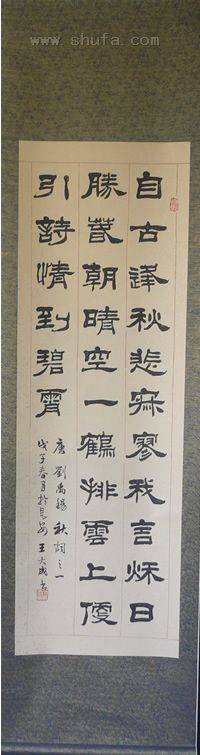 www.shufa.com
自古逢秋悲寂寥我言秋日
勝春朝晴空一鶴排雲上便
引詩情到碧霄
唐劉禹錫秋詞之一
戊子春月於長安王大成書